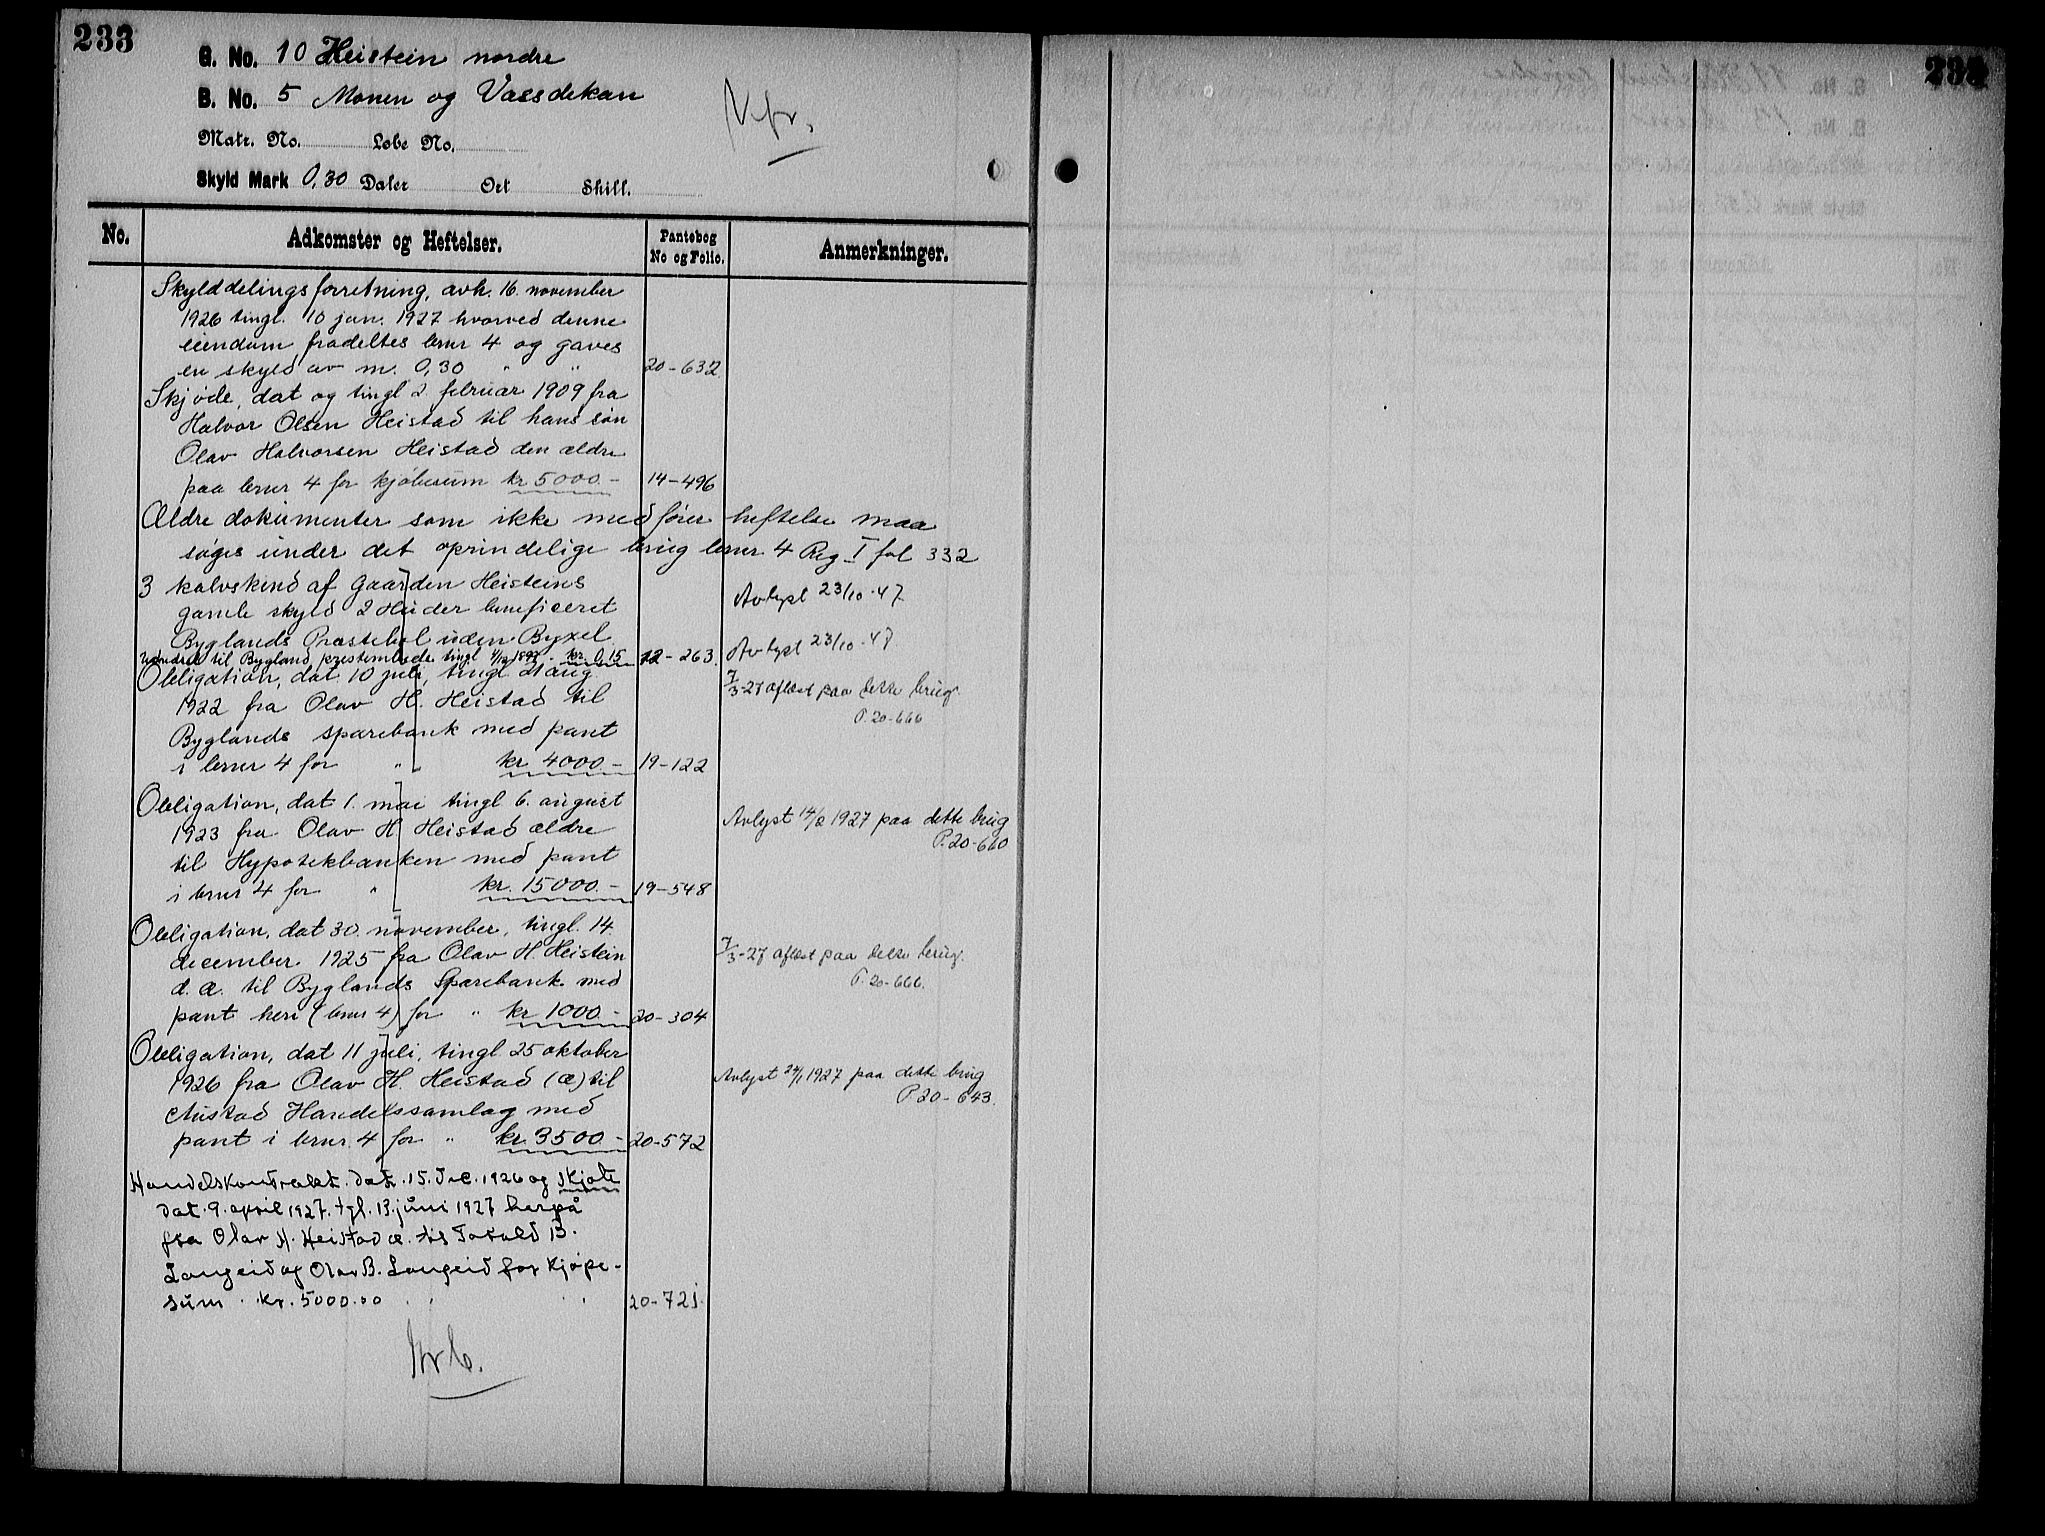 233
G. No. 10 Heistein nordre
B. No. 5 Monen og Vassdekan
Matr. No. Løbe No.
Skyld Mark 0,30 Daler Ort Skill.
No. Adkomster og Heftelser. Pantebog No og Folio. Anmerkninger.
Skylddelingsforretning, avh. 16. november
1926 tingl. 10 jan. 1927 hvorved denne
eiendom fradeltes brnr 4 og gaves
en skyld av m. 0,30 " " 20-632
Skjøde, dat og tingl 2 februar 1909 fra
Halvor Olsen Heistad til hans søn
Olav Halvorsen Heistad den ældre
paa brnr 4 for kjøbesum kr 5000.- 14-496
Ældre dokumenter som ikke medfører heftelse maa
søges under det oprindelige brug brnr 4 Reg I fol 332
3 kalvskind af Gaarden Heisteins
gamle skyld 2 Huder beneficeret Avlyst 23/10-47
Byglands Præstebol uden Byxel
til Bygland prestembede tingl 1/12 1892 - kr. 0,15 12-263. Avlyst 23/10-47
Obligation, dat. 10 juli, tingl 21 aug
1922 fra Olav H. Heistad til 7/3-27 aflæst paa dette brug.
Byglands sparebank med pant P. 20-666
i brnr 4 for " " kr 4000.- 19-122
Obligation, dat 1. mai tingl 6. august
1923 fra Olav H Heistad ældre Avlyst 14/2 1927 paa dette brug
til Hypotekbanken med pant P. 20-660
i brnr 4 for " kr. 15000.- 19-548
Obligation, dat 30. november, tingl. 14
december 1925 fra Olav H. Heistein 7/3-27 aflæst paa dette brug.
d. æ. til Byglands Sparebank med P. 20-666.
pant heri (brnr 4) for " kr 1000.- 20-304
Obligation, dat 11 juli, tingl 25 oktober
1926 fra Olav H. Heistad (æ) til Avlyst 24/1 1927 paa dette brug
Austad Handelssamlag med P 20-643.
pant i brnr. 4 for " kr. 3500.- 20-572
Handelskontrakt. dat. 15. de. 1926 og skjøte
dat. 9. april 1927. tgl. 13. juni 1927 herpå
fra Olav H. Heistad æ. til Torald B.
Langeid og Olav B. Langeid for kjøpe-
sum kr. 5000.00 20-721.